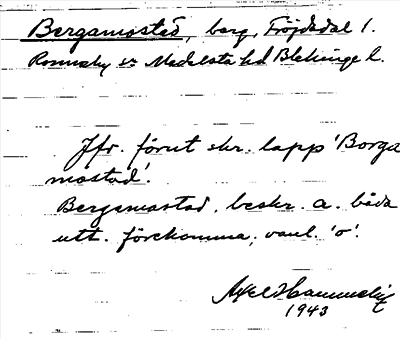 Bergamostad, berg, Fröjdadal 1.
Ronneby sn Medelsta hd Blekinge l.
Jfr. förut skr. lapp 'Borga
mostad'.
Bergamostad. beskr. a. båda
utt. förekomma, vanl. 'o'.
Axel
1943